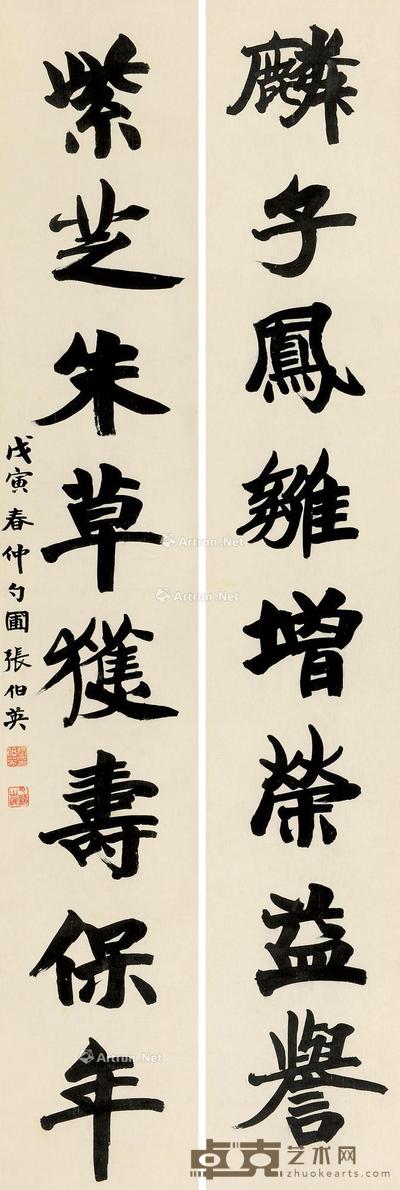 麟子鳳雛增榮益譽
紫芝朱草獲壽保年
戊寅春仲勺圃張伯英
Artron.Net
Artron.Net
Artron.Net
卓克艺术网
zhuokearts.com